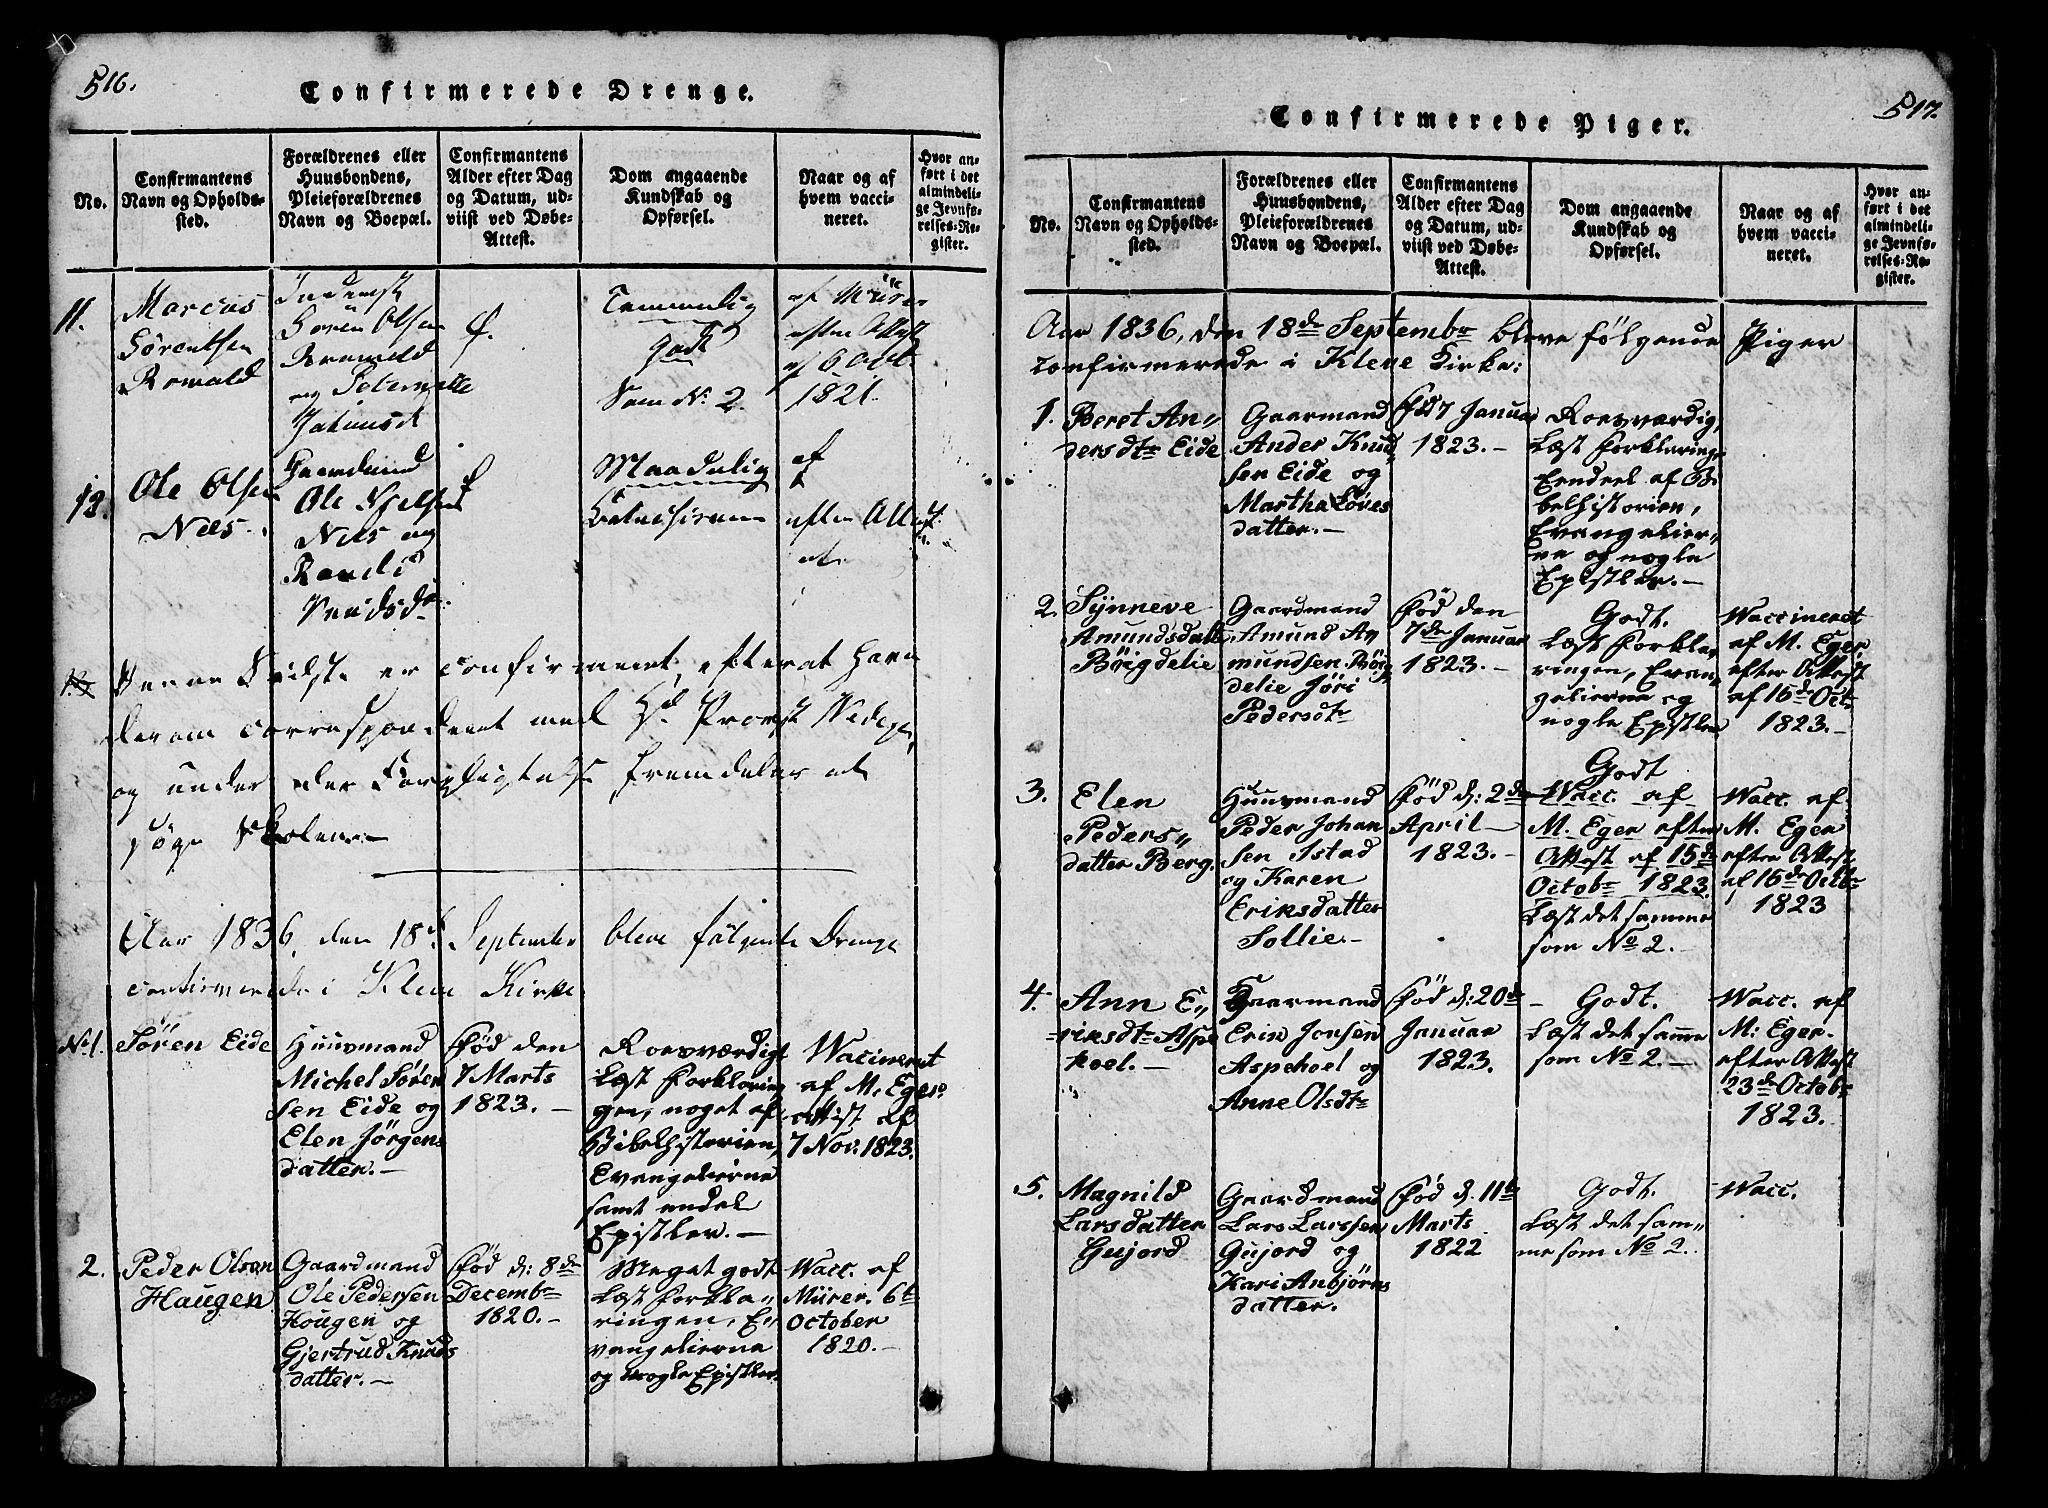 516.
Confirmerede Drenge.
No.
Confirmantens
Navn og Opholds-
sted.
Forældrenes eller
Huusbondens,
Pleieforældrenes
Navn og Boepæl.
Confirmantens
Alder efter Dag
og Datum, ud-
viist ved Døbe-
Attest.
Dom angaaende
Kundskab og
Opførsel.
Naar og af
hvem vacci-
neret.
Hvor an-
ført i det
almindeli-
ge Jevnfø-
relses-Re-
gister.
11.
Marcus
Sørensen
Romald
Søren Olsen
og
f.
Temmelig
godt
Som No. 2.
af
efter Attest
af 6 Oct.
1821.
12.
Ole Olsen
Nees.
Ole
Nees og
Randi
f
Maadelig
af
efter Attest
Denne Sidste er confirmeret, efter at have
derom correspondeeret med Hr. Provst
og under der Forpligtelse fremdeles at
søge Skolen.
Aar 1836, den 18de September bleve følgende Drenge
confirmerede i Kleve Kirke
No 1.
Søren Eide
Huusmand
Michel Søren
sen Eide og
Elen Jørgens
datter.—
Fød den
7 Marts
1823.—
Roesværdigt
Læst Forklarin
gen, noget af
Bibelhistorien,
Evangelierne
samt endel
Epistler.—
Vacineret
af M. Eger
attest af
7 Nov. 1823.
2.
Peder Olsen
Haugen
Gaardmand
Ole Pedersen
Hougen og
Gjertrud Knuds
datter.—
Fød d: 8de
Decembr
1820.—
Meget godt
Læst Forkla„
ringen, E„
vangelierne
og nogle Epistler
Vacc. af
Mürer. 6te
October
1820.—
517.
Confirmerede Piger.
No.
Confirmantens
Navn og Opholds-
sted.
Forældrenes eller
Huusbondens,
Pleieforældrenes
Navn og Boepæl.
Confirmantens
Alder efter Dag
og Datum, ud-
viist ved Døbe-
Attest.
Dom angaaende
Kundskab og
Opførsel.
Naar og af
hvem vacci-
neret.
Hvor an-
ført i det
almindeli-
ge Jevnfø-
relses-Re-
gister.
Aar 1836, den 18de Septembr bleve følgende Piger
confirmerede i Kleve Kirke:
1.
Beret An„
dersdtr Eide
Gaarmand
Ander Knud
sen Eide og
Martha Loves
datter.—
7 Januar
1823.—
Roesværdig,
Læst Forklaring
Eendeel af Bi
belhistorien,
Evangelier„
ne og nogle
Epistler.—
2.
Synneve
Amundsdatte
Böigdelie
Gaardmand
Amund A„
mundsen Böig
delie Jöri
Pedersdtr
Fød den
7de Januar
1823.—
Godt.
Læst Forkla„
ringen, Evan„
gelierne og
nogle Epistler
Vaccineret
af M. Eger
efter Attest
af 15de Octr
1823.—
3.
Elen
Peders„
datter Berg.
Huusmand
Peder Johan
sen Istad
og Karen
Eriksdatter
Sollie.—
Fød d: 2den
April—
1823.—
Godt
Vacc. af
M. Eger efter
Attest af 15de
Octobr 1823
Læst det samme
som No 2.—
Vacc. af
M. Eger
efter Attest
af 15de Octbr
1823
4.
Ann E„
riksdtr Aspe
hoel.—
Gaarmand
Erik Jonsen
Aspehoel og
Anne Olsdtr
Fød d: 20de
Januar
1823.
— Godt.
Læst det samme
som No 2.—
Vacc. af
M: Eger.
efter Attest
23de Octobr
1823.
5.
Magnild
Larsdatter
Gujord
Gaardmand
Lars Larssen
Gujord og
Kari Anbjørns
datter.
Fød d. 11te
Marts
1822
Godt.
Læst det sam„
me som No 2.
Vacc.